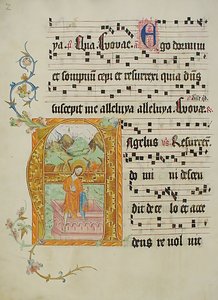 ya. Aia. Evovae. Ego dormivi
et sompnum cepi et resurrexi quia dns
suscepit me alleluya alleluya. Evovae.
Angelus Resurrex.
do mi ni descen
dit de ce lo et acce
dens re vol vit